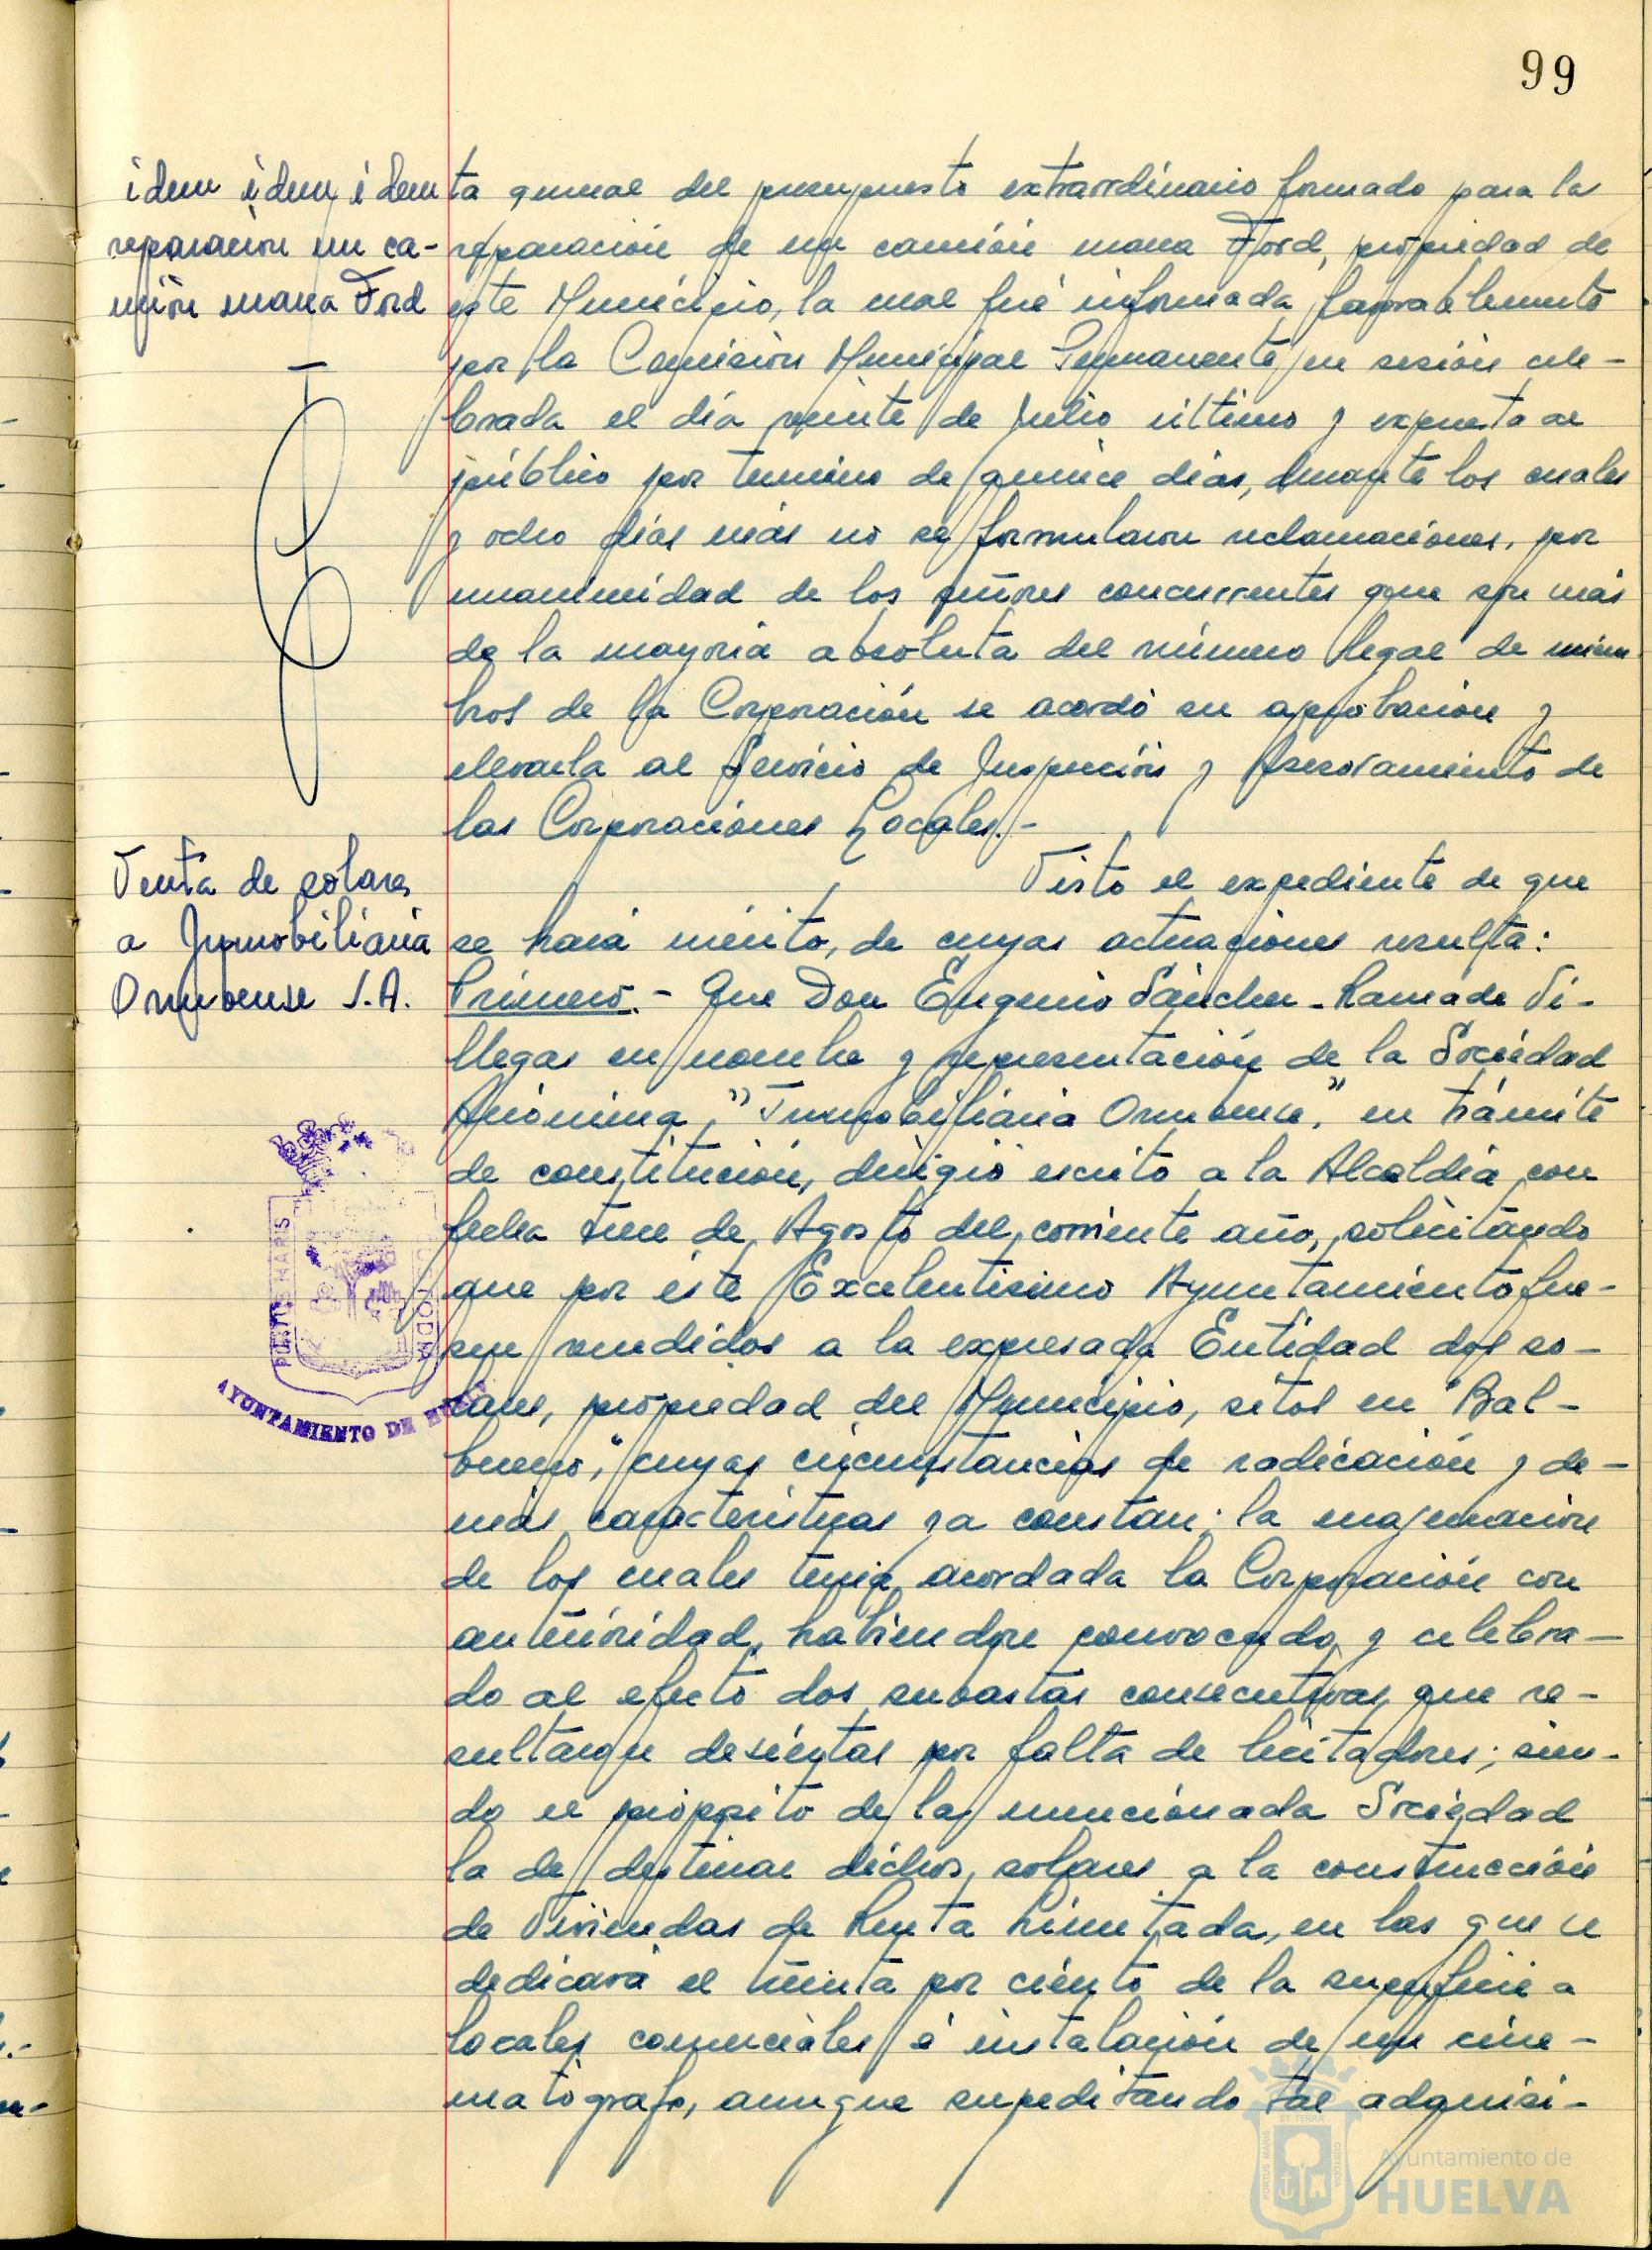 99
idem idem idem
reparación un ca-
mión marca Ford
ta general del presupuesto extraordinario formado para la
reparación de un camión marca Ford, propiedad de
este Municipio, la cual fué informada favorablemente
por la Comisión Municipal Permanente en sesión cele-
brada el día veinte de Julio último y expuesta al
público por termino de quince días, durante los cuales
y ocho días más no se formularon reclamaciones, por
unanimidad de los señores concurrentes que son más
de la mayoría absoluta del número legal de miem-
bros de la Corporación se acordó su aprobación y
elevarla al Servicio de Inspección y Asesoramiento de
las Corporaciones Locales.-
Venta de solares
a Inmobiliaria
Onubense S.A.
Visto el expediente de que
se hará mérito, de cuyas actuaciones resulta:
Primero.- Que Don Eugenio Sánchez-Ramade Vi-
llegas en nombre y representación de la Sociedad
Anónima, "Inmobiliaria Onubense", en trámite
de constitución, dirigió escrito a la Alcaldía con
fecha trece de Agosto del corriente año, solicitando
que por éste Excelentísimo Ayuntamiento fue-
sen vendidos a la expresada Entidad dos so-
lares, propiedad del Municipio, sitos en "Bal-
bueno", cuyas circunstancias de radicación y de-
más características ya constan; la enajenación
de los cuales tenía acordada la Corporación con
anterioridad, habiendose convocado y celebra-
do al efecto dos subastas consecutivas que re-
sultaron desiertas por falta de licitadores; sien-
do el propósito de la mencionada Sociedad
la de destinar dichos solares a la construcción
de Viviendas de Renta Limitada, en las que se
dedicará el treinta por ciento de la superficie a
locales comerciales é instalación de un cine-
matógrafo, aunque supeditando tal adquisi-
PORTUS MARIS
CUSTODIA
AYUNTAMIENTO DE HUELVA
Ayuntamiento de
HUELVA